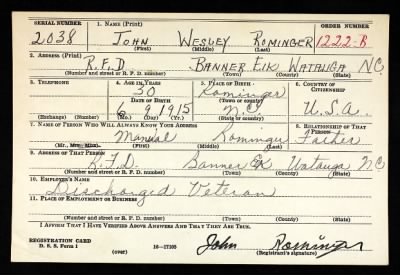 SERIAL NUMBER 1. NAME (Print) ORDER NUMBER
2038 JOHN WESLEY ROMINGER 1222-B
(First) (Middle) (Last)
2. ADDRESS (Print)
R.F.D BANNER ELK WATAUGA NC
(Number and street or R. F. D. number) (Town) (County) (State)
3. TELEPHONE 4. AGE IN YEARS 5. PLACE OF BIRTH 6. COUNTRY OF CITIZENSHIP
30 Rominger
DATE OF BIRTH (Town or county)
6 9 1915 N.C. U.S.A.
(Exchange) (Number) (Mo.) (Day) (Yr.) (State or country)
7. NAME OF PERSON WHO WILL ALWAYS KNOW YOUR ADDRESS 8. RELATIONSHIP OF THAT PERSON
Manual Rominger Father
(Mr., Mrs., Miss) (First) (Middle) (Last)
9. ADDRESS OF THAT PERSON
R.F.D. Banner Elk Watauga NC
(Number and street or R. F. D. number) (Town) (County) (State)
10. EMPLOYER'S NAME
Discharged Veteran
11. PLACE OF EMPLOYMENT OR BUSINESS
(Number and street or R. F. D. number) (Town) (County) (State)
I AFFIRM THAT I HAVE VERIFIED ABOVE ANSWERS AND THAT THEY ARE TRUE.
REGISTRATION CARD
D. S. S. Form 1 (over) 16—17105 John Rominger
(Registrant's signature)